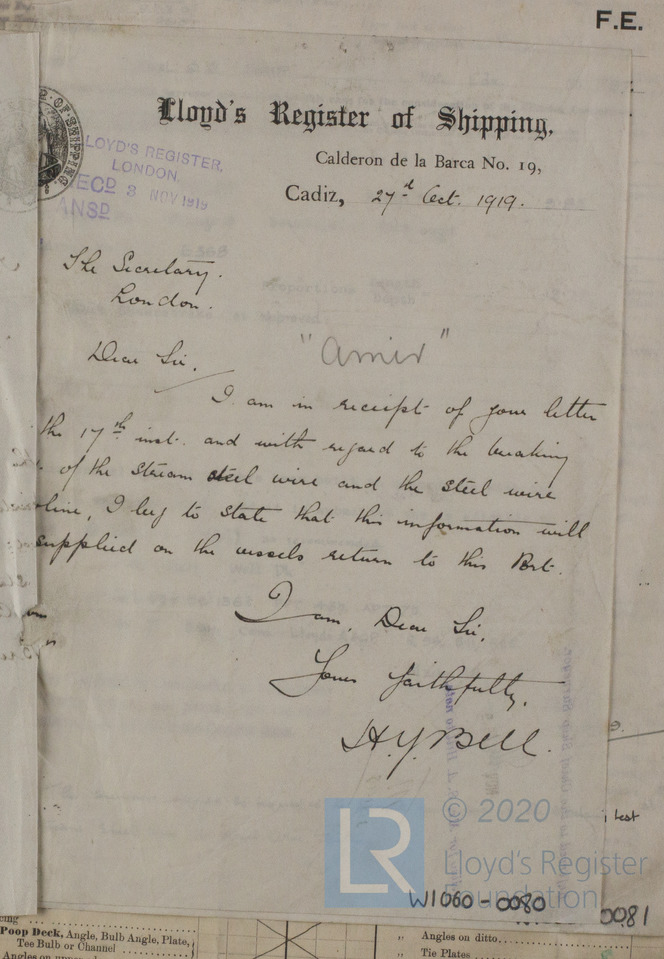 F.E.
Lloyd's Register of Shipping,
Calderon de la Barca No. 19,
Cadiz, 27th Oct. 1919.
LLOYD'S REGISTER,
LONDON.
RECD 3 NOV 1919
ANSD
The Secretary.
London.
"Amir"
Dear Sir,
I am in receipt of your letter
the 17th inst. and with regard to the breaking
of the stream steel wire and the steel wire
line, I beg to state that this information will
supplied on the vessels return to this Port.
I am, Dear Sir,
Yours faithfully,
H.Y. Bell.
test
LR
© 2020
Lloyd's Register
Foundation
W1060-0080
0081
Poop Deck, Angle, Bulb Angle, Plate,
Tee Bulb or Channel
Angles on upper
" Angles on ditto
" Tie Plates